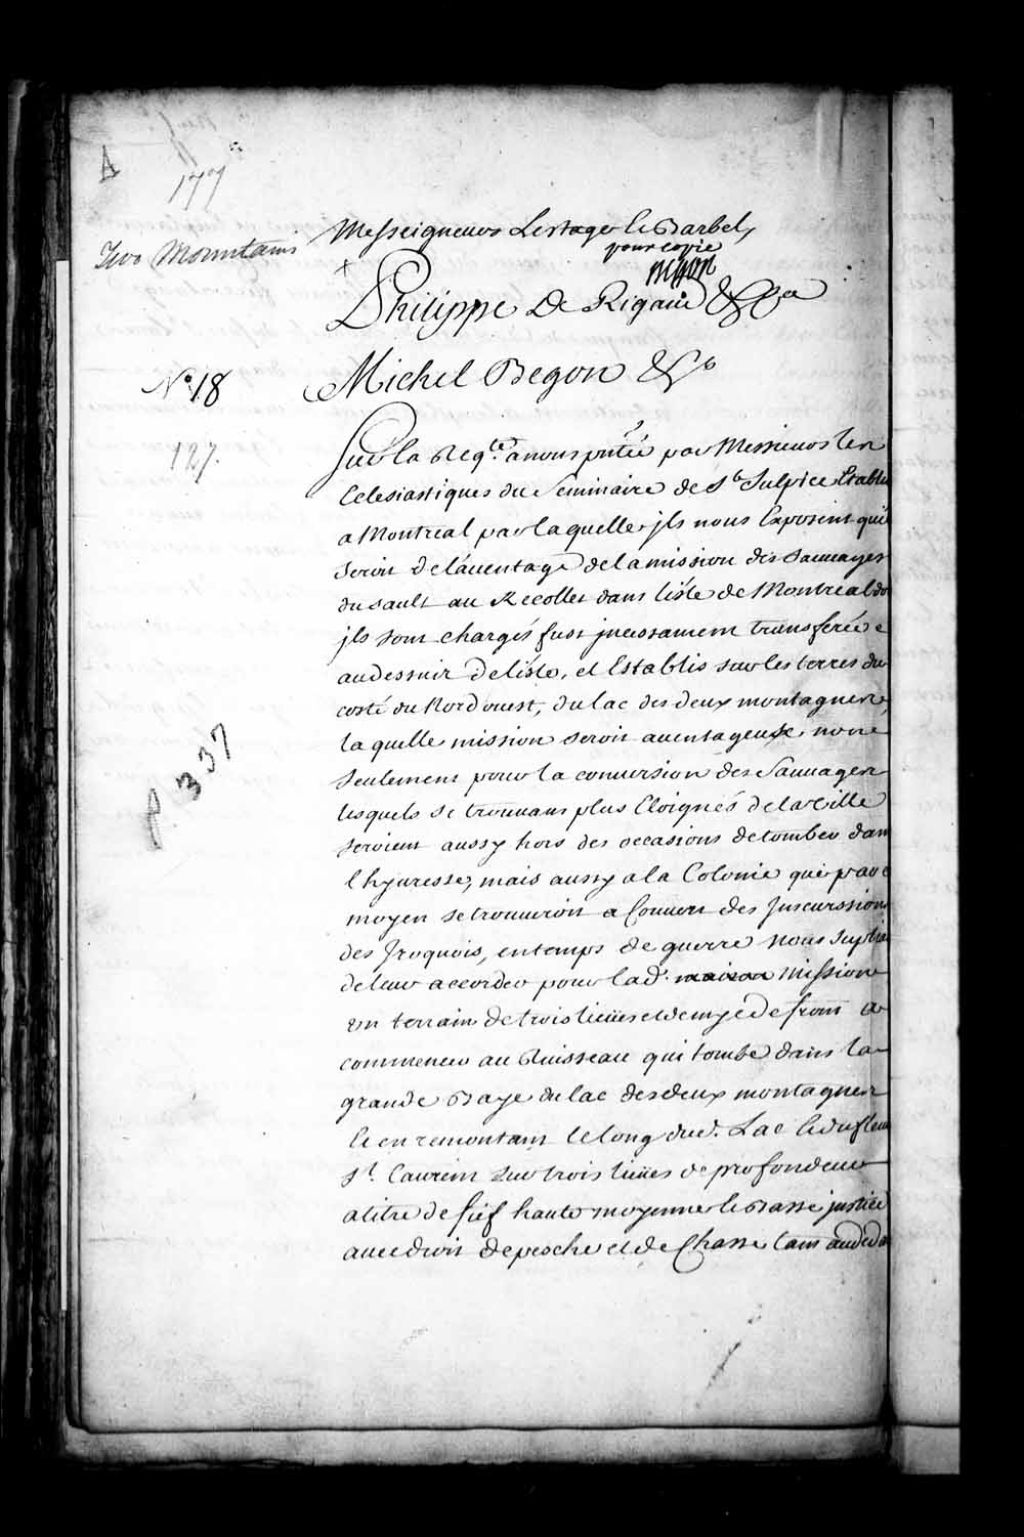 A
177
Two Mountains
Messeigneurs Lestage & Barbel,
pour copie
Begon
Philippe De Rigaud &ca
No. 18
Michel Begon &c
127.
Sur la Reqte. a nous pntée par Messieurs les
Eclesiastiques du Seminaire de St Sulpice Etablis
a Montreal par laquelle jls nous Exposent quil
seroit de lauentage de la mission des Sauuages
du Sault au Recollet dans lisle de Montreal do
jls sont chargés fust jncessament transferée
audessus de lisle, et Establis sur les terres du
costé du Nord ouest, du lac des deux montagnes,
laquelle mission seroit auentageuse, nonne
seulement pour la conuersion des Sauuages
lesquels se trouuans plus Eloignés de la ville
seroient aussy hors des occasions de tomber dans
lhyuresse, mais aussy a la Colonie qui par ce
moyen se trouueroit a Couuert des Jncurssions
des Jroquois, en temps de guerre Nous Suplia
de leur accorder pour lad. maison mission
un terrain de trois lieües et demye de front a
commencer au Ruisseau qui tombe dans la
grande Baye du lac des deux montagnes
& en remontant le long dud. Lac & du fleuu
St. Laurent sur trois lieües de profondeur
a titre de fief haute moyenne & Basse justice
auec droit de pesche et de Chasse tant audeda
p. 337